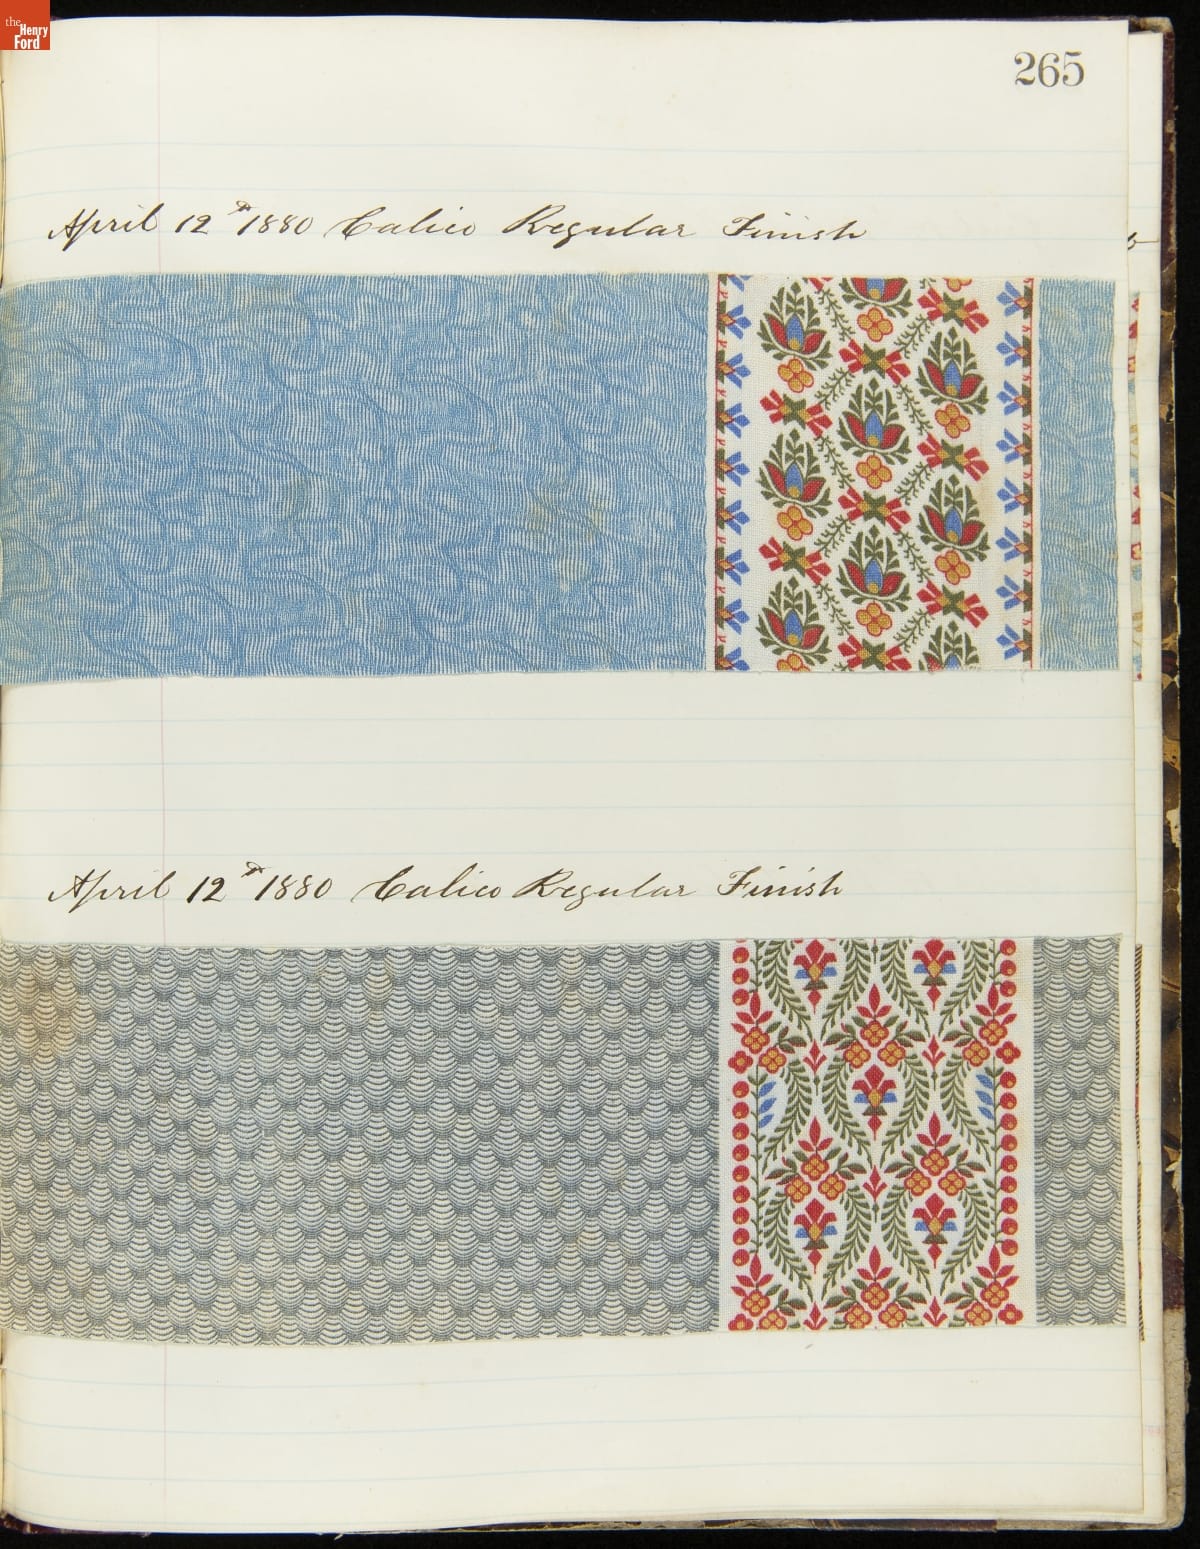 the
Henry
Ford
265
April 12th 1880 Calico Regular Finish
April 12th 1880 Calico Regular Finish